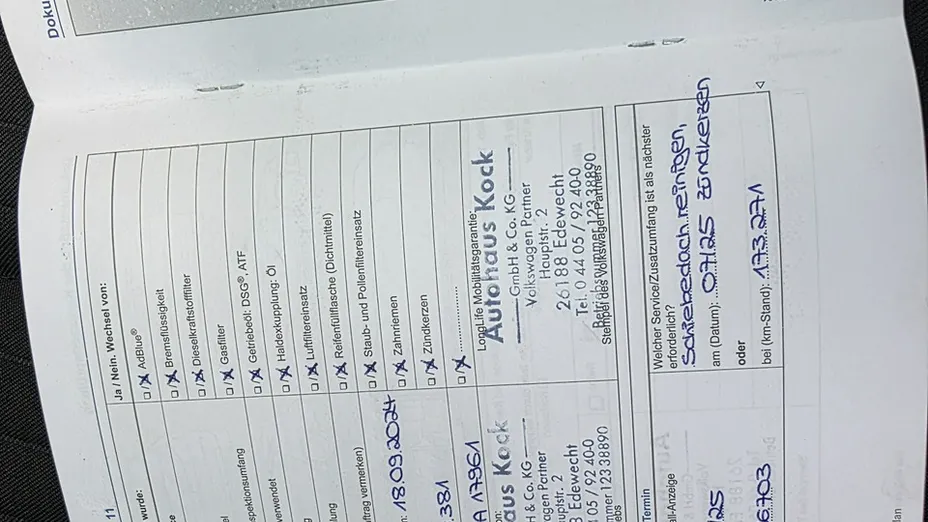 Doku
11
wurde:
spektionsumfang
verwendet
ftrag vermerken)
18.09.2024
.381
A 17961
aus Kock
H & Co. KG
agen Partner
uptstr. 2
8 Edewecht
4 05 / 92 40-0
mmer 123 38890
Ja / Nein. Wechsel von:
□/X AdBlue®
□/X Bremsflüssigkeit
□/X Dieselkraftstofffilter
□/X Gasfilter
□/X Getriebeöl: DSG®, ATF
□/X Haldexkupplung: Öl
□/X Luftfiltereinsatz
□/X Reifenfüllflasche (Dichtmittel)
□/X Staub- und Pollenfiltereinsatz
□/X Zahnriemen
□/X Zündkerzen
□/X ....................
LongLife Mobilitätsgarantie:
Autohaus Kock
GmbH & Co. KG
Volkswagen Partner
Hauptstr. 2
26188 Edewecht
Tel. 0 44 05 / 92 40-0
Betriebsnummer 123 38890
Stempel des Volkswagen Partners
Termin
all-Anzeige
/25
6.703
Welcher Service/Zusatzumfang ist als nächster
erforderlich?
Schiebedach reinigen,
am (Datum): 07/25 Zündkerzen
oder
bei (km-Stand): 173.271